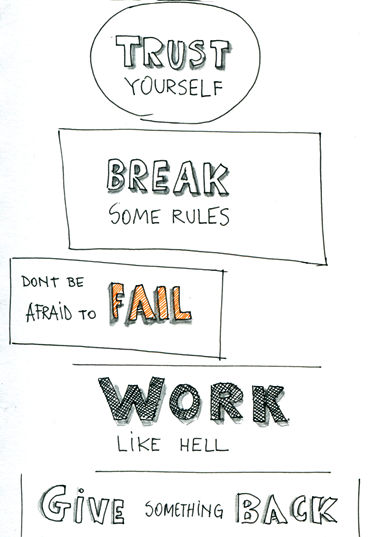 TRUST
YOURSELF
BREAK
SOME RULES
DONT BE
AFRAID TO FAIL
WORK
LIKE HELL
GIVE SOMETHING BACK